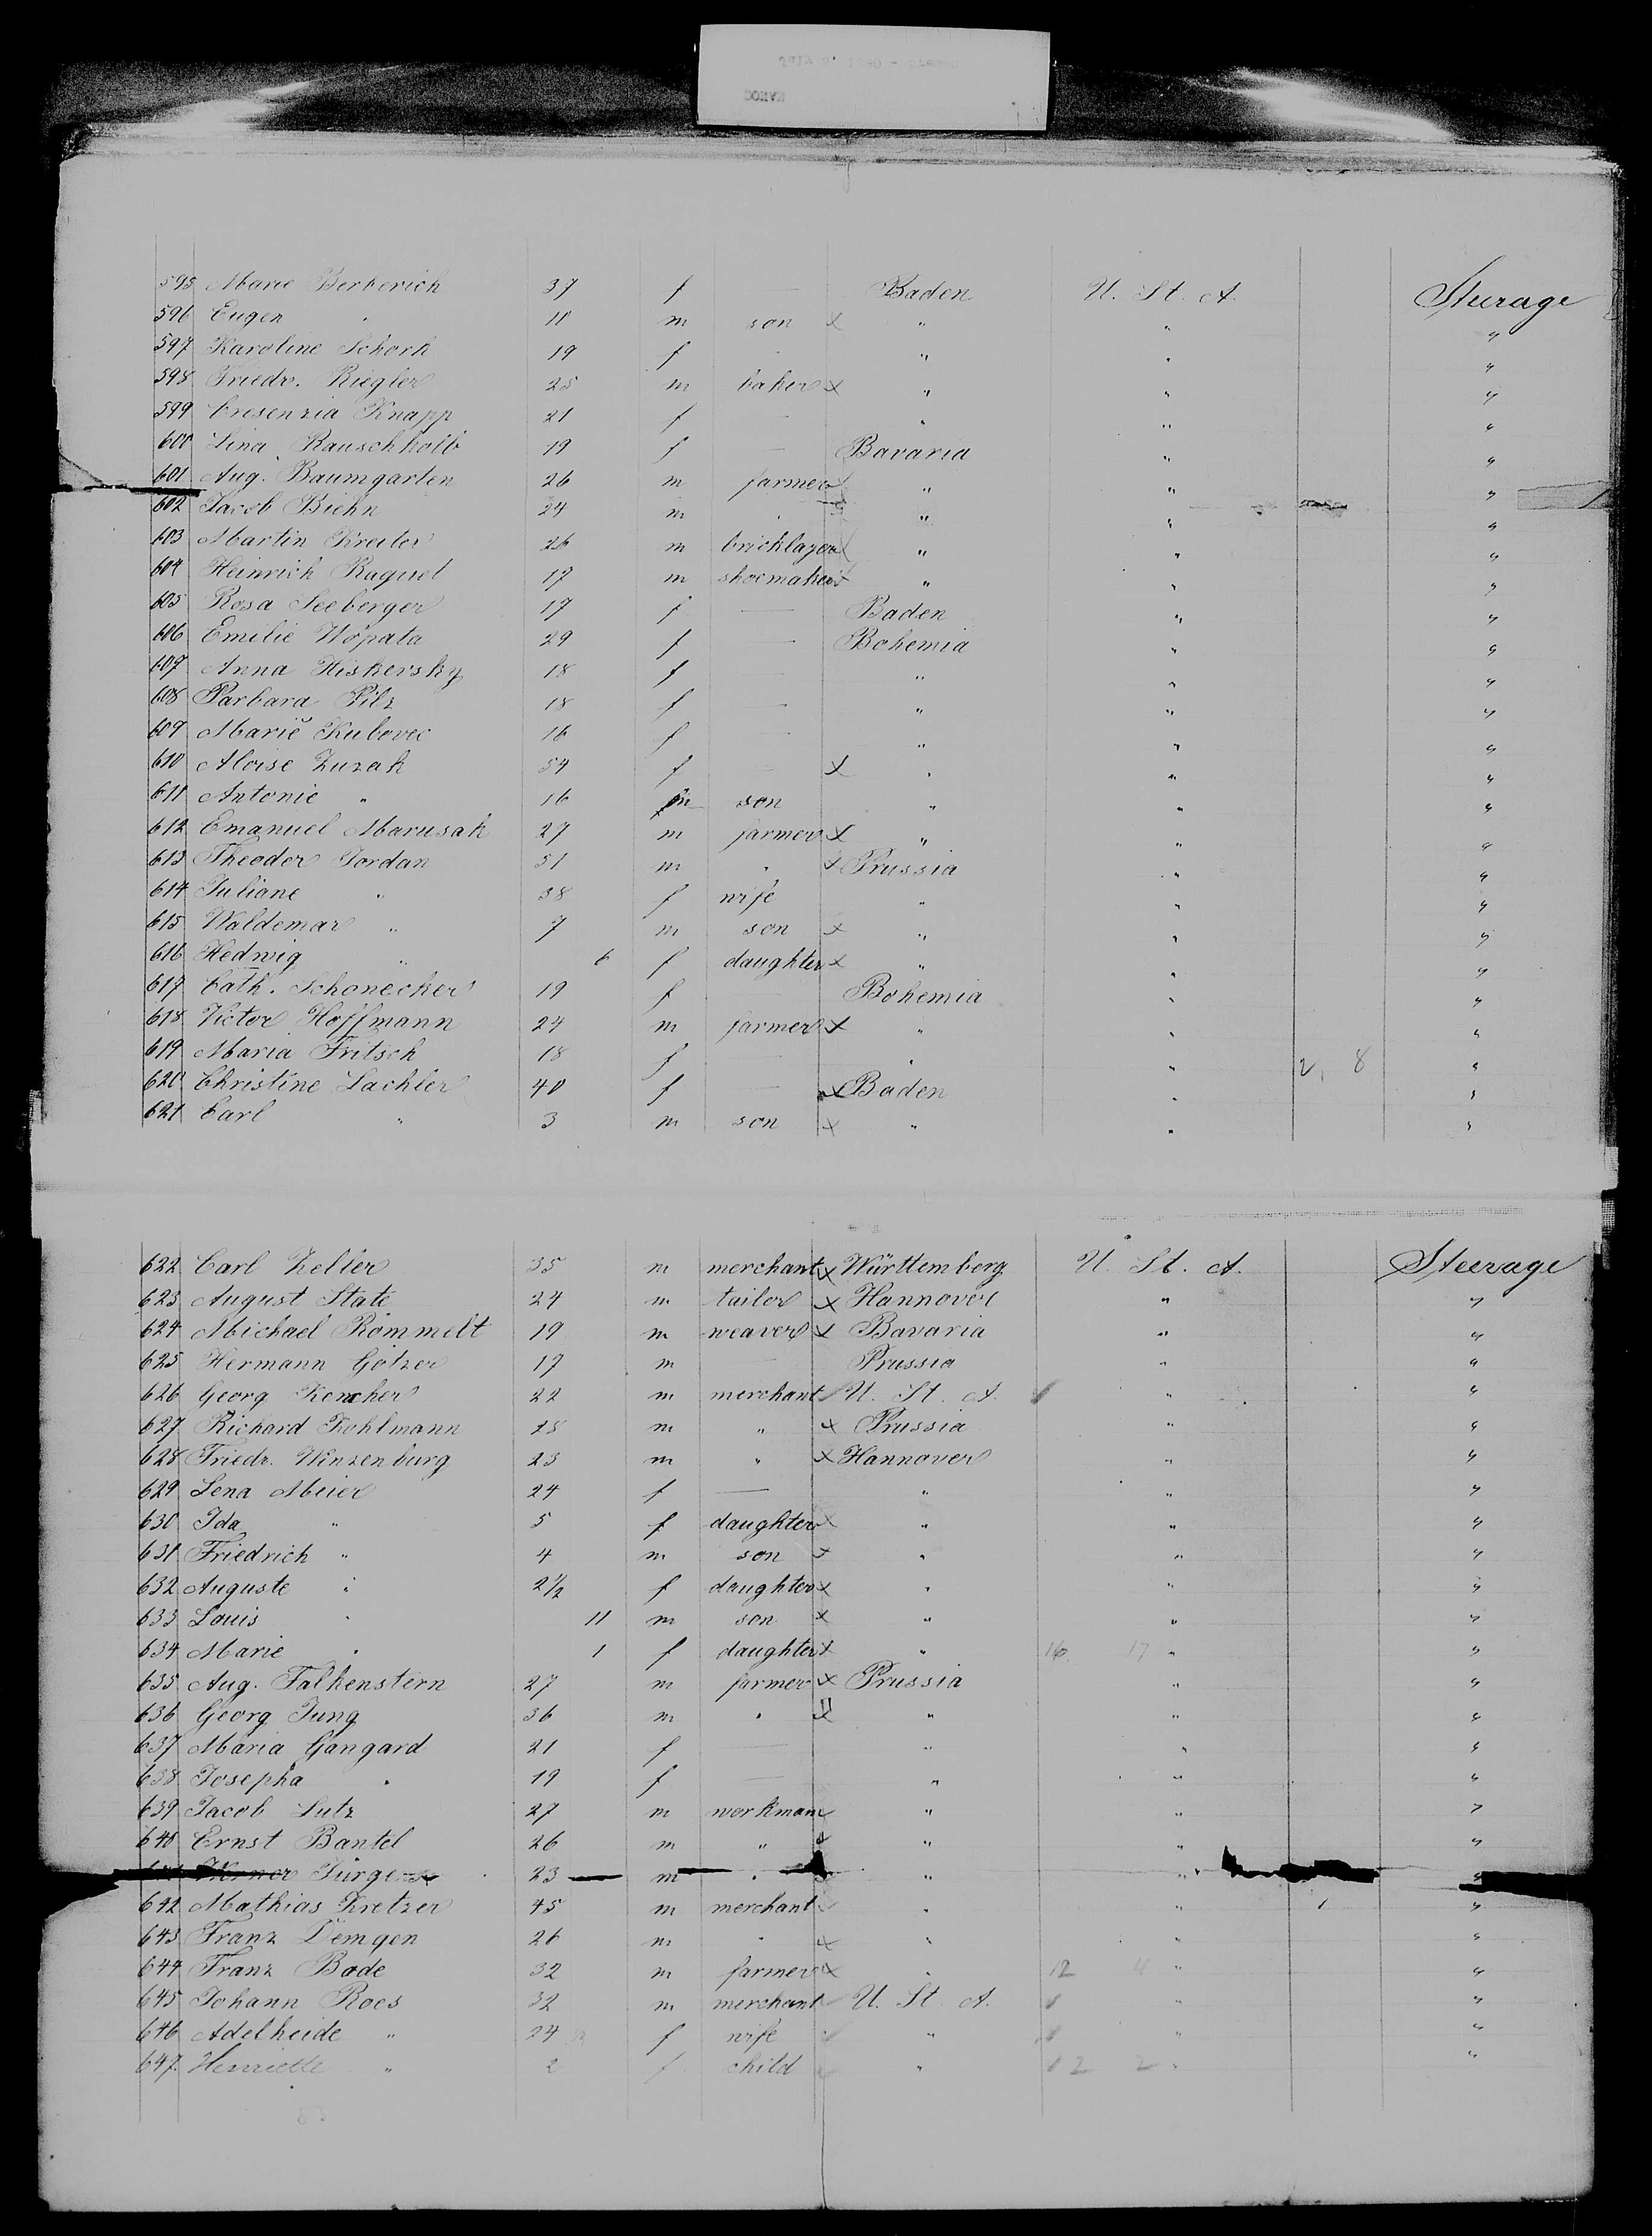 595 Marie Berberich 37 f — Baden U. St. A. Steerage
596 Eugen " 11 m son x " " "
597 Karoline Schork 19 f " " "
598 Friedr. Riegler 25 m baker x " " "
599 Cresenzia Knapp 21 f — " " "
600 Lina Rauschkolb 19 f — Bavaria " "
601 Aug. Baumgarten 26 m farmer x " " "
602 Jacob Biehn 24 m " x " " "
603 Martin Kreiter 26 m bricklayer x " " "
604 Heinrich Raquet 17 m shoemaker x " " "
605 Rosa Seeberger 17 f — Baden " "
606 Emilie Wopata 29 f — Bohemia " "
607 Anna Hiskersky 18 f — " " "
608 Barbara Pilz 18 f — " " "
609 Marie Kubovec 16 f — " " "
610 Aloise Zuzak 54 f — x " " "
611 Antonie " 16 m son " " "
612 Emanuel Marusak 27 m farmer x " " "
613 Theodor Jordan 51 m " x Prussia " "
614 Juliane " 38 f wife " " "
615 Waldemar " 7 m son x " " "
616 Hedwig " 6 f daughter x " " "
617 Cath. Schonecker 19 f — Bohemia " "
618 Victor Hoffmann 24 m farmer x " " "
619 Maria Fritsch 18 f " " 2, 8 "
620 Christine Lachler 40 f — x Baden " "
621 Carl " 3 m son x " " "
622 Carl Zeller 35 m merchant x Württemberg U. St. A. Steerage
623 August State 24 m tailor x Hannover " "
624 Michael Rommelt 19 m weaver x Bavaria " "
625 Hermann Götzer 17 m — Prussia " "
626 Georg 22 m merchant U. St. A. " "
627 Richard Kohlmann 18 m " x Prussia " "
628 Friedr. Winzenburg 23 m " x Hannover " "
629 Lena Meier 24 f — " " "
630 Ida " 5 f daughter x " " "
631 Friedrich " 4 m son x " " "
632 Auguste " 2½ f daughter x " " "
633 Louis " 11 m son x " " "
634 Marie " 1 f daughter x " 16 17 " "
635 Aug. Falkenstern 27 m farmer x Prussia " "
636 Georg Jung 36 m " x " " "
637 Maria Gangard 21 f — " " "
638 Josepha " 19 f — " " "
639 Jacob Lutz 27 m workman x " " "
640 Ernst Bantel 26 m " x " " "
23 m " x " " "
642 Mathias Kretzer 45 m merchant " " "
643 Franz Demgen 26 m " x " " "
644 Franz Bode 32 m farmer x " 12 4 " "
645 Johann Roes 32 m merchant U. St. A. " "
646 Adelheide " 24 f wife " " "
647. Henriette " 2 f child " 12 2 " "